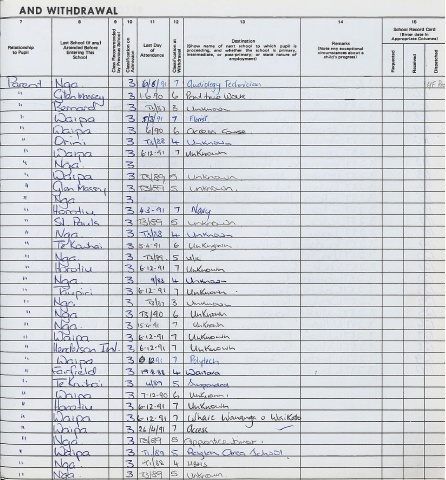 AND WITHDRAWAL
7 8 9 10 11 12 13 14 15
Relationship to Pupil
Last School (if any) Attended Before Entering This School
Classification on Admission
Last Day of Attendance
Classification at Withdrawal
Destination
(Show name of next school to which pupil is proceeding, and whether the school is primary, intermediate, or post-primary; or state nature of employment)
Remarks
(Note any exceptional circumstances about a child's progress)
School Record Card
(Enter date in Appropriate Columns)
Requested
Received
Dispatched
Parent Nga 3 7 Audiology Technician
" Glen Massey 3 1.6.90 6 Positive Work
" Bernard 3 T3/87 3 Unknown
" Waipa 3 7 Florist
" Waipa 3 6/90 6 Access Course
" Orini 3 T3/88 4 Unknown
" Waipa 3 6-12-91 7 Unknown
" Nga 3
" Waipa 3 T3/89 5 Unknown
" Glen Massey 3 T3/89 5 unknown.
" Nga 3
" Horotiu 3 4-3-91 7 Navy
" St. Pauls 3 T3/89 5 unknown
" Nga. 3 T3/88 4 Unknown
" Te Kauhai 3 15-4-91 6 Unknown
" Nga. 3 T3/89 5 u/k
" Horotiu 3 6-12-91 7 Unknown
" Nga. 3 9/88 4 Unknown
" Taupiri 3 6-12-91 7 Unknown
" Nga. 3 T3/87 3 Unknown
" Nga 3 T3/90 6 Unknown
" Nga. 3 15-4-91 7 Unknown
" Waipa 3 6-12-91 7 Unknown
" Henderson Int. 3 6-12-91 7 Unknown
" Waipa 3 7 Polytech
" Fairfield 3 19.8.88 4 Waitara
" Te Kauhai 3 4/89 5 Suspended
" Waipa 3 7-12-90 6 Unknown
" Horotiu 3 6-12-91 7 Unknown
" Waipa 3 6-12-91 7 Whare Wananga o Waikato
" Waipa 3 26/4/91 7 Access
" Nga 3 T3/89 5
" Waipa 3 T1/89 5 Raglan Area School
" Nga. 3 T1/88 4
" Nga 3 T3/89 5 Unknown